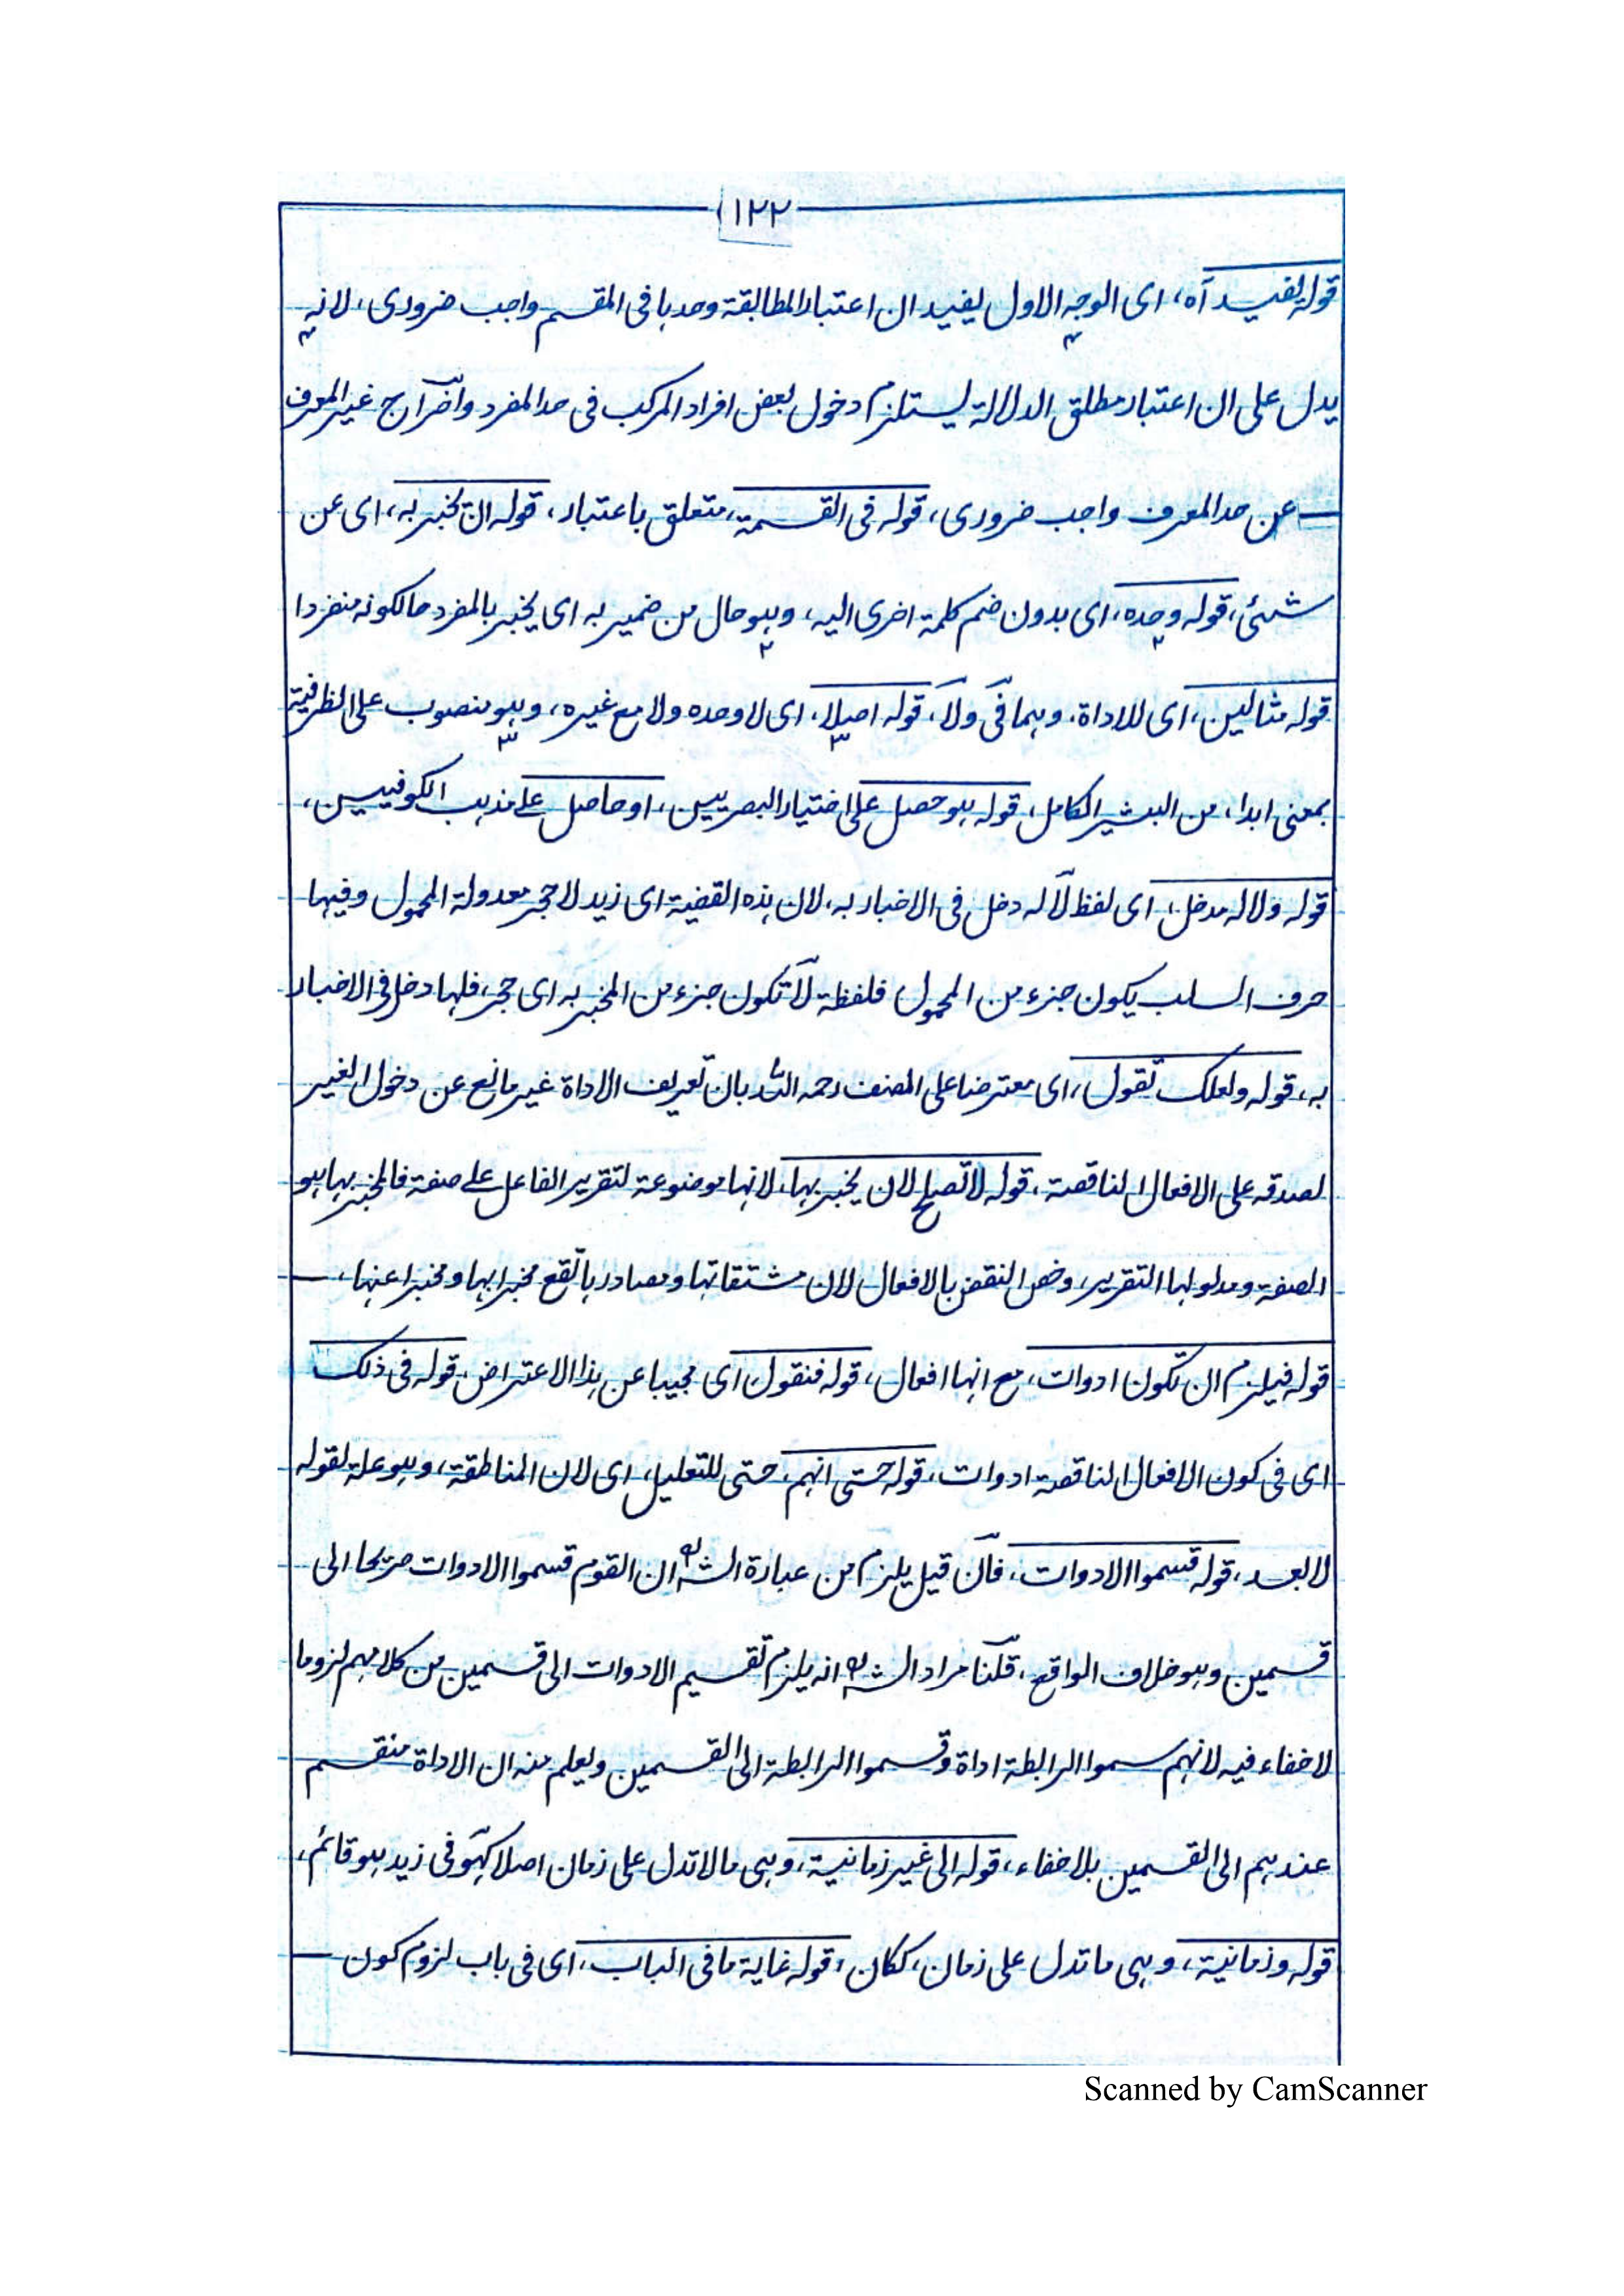 ١٢٢
قوله يفيد آه، اى الوجه الاول يفيد ان اعتبار المطابقة وحدها فى المقسم واجب ضرورى، لانه
يدل على ان اعتبار مطلق الدلالة يستلزم دخول بعض افراد المركب فى حد المفرد واخراج غير المعرف
عن حد المعرف واجب ضرورى، قوله فى القسمة، متعلق باعتبار، قوله ان يخبر به، اى عن
شئ، قوله وحده، اى بدون ضم كلمة اخرى اليه، وهو حال من ضمير به اى يخبر بالمفرد حالكونه منفردا
قوله مثالين، اى للاداة، وهما فى ولا، قوله اصلا، اى لا وحده ولا مع غيره، وهو منصوب على الظرفية
بمعنى ابدا، من البشير الكامل، قوله هو حصل على اختيار البصريين، او حاصل على مذهب الكوفيين،
قوله ولا له مدخل، اى لفظ لا له دخل فى الاخبار به، لان هذه القضية اى زيد لا حجر معدولة المحمول وفيها
حرف السلب يكون جزء من المحمول فلفظة لا تكون جزء من المخبر به اى حجر، فلها دخل فى الاخبار
به، قوله ولعلك تقول، اى معترضا على المصنف رحمه الله بان تعريف الاداة غير مانع عن دخول الغير
لصدقه على الافعال الناقصة، قوله لا تصلح لان يخبر بها، لانها موضوعة لتقرير الفاعل على صفة فالمخبر بها هو
الصفة ومدلولها التقرير، وخص النقض بالافعال لان مشتقاتها ومصادرها تقع مخبرا بها ومخبرا عنها،
قوله فيلزم ان تكون ادوات، مع انها افعال، قوله فنقول، اى مجيبا عن هذا الاعتراض، قوله فى ذلك
اى فى كون الافعال الناقصة ادوات، قوله حتى انهم، حتى للتعليل، اى لان المناطقة، وهو علة لقوله
لا بعد، قوله قسموا الادوات، فان قيل يلزم من عبارة الشه ان القوم قسموا الادوات صريحا الى
قسمين وهو خلاف الواقع، قلنا مراد الشه انه يلزم تقسيم الادوات الى قسمين من كلامهم لزوما
لا خفاء فيه لانهم سموا الرابطة اداة وقسموا الرابطة الى القسمين ويعلم منه ان الاداة منقسم
عندهم الى القسمين بلا خفاء، قوله الى غير زمانية، وهى ما لا تدل على زمان اصلا كهو فى زيد هو قائم،
قوله وزمانية، وهى ما تدل على زمان، ككان، قوله غاية ما فى الباب، اى فى باب لزوم كون
Scanned by CamScanner